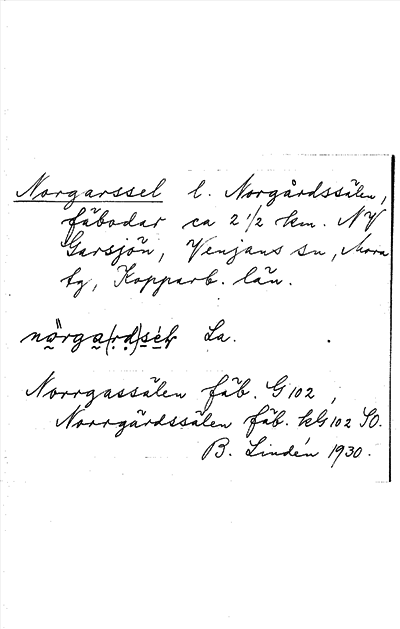 Norgarssel l. Norgårdssälen,
fäbodar ca 2 1/2 km. NV
Garsjön, Venjans sn, Mora
tg, Kopparb. län.
La.
Norrgassälen fäb. G 102,
Norrgårdssälen fäb. kG 102 SO.
B. Lindén 1930.